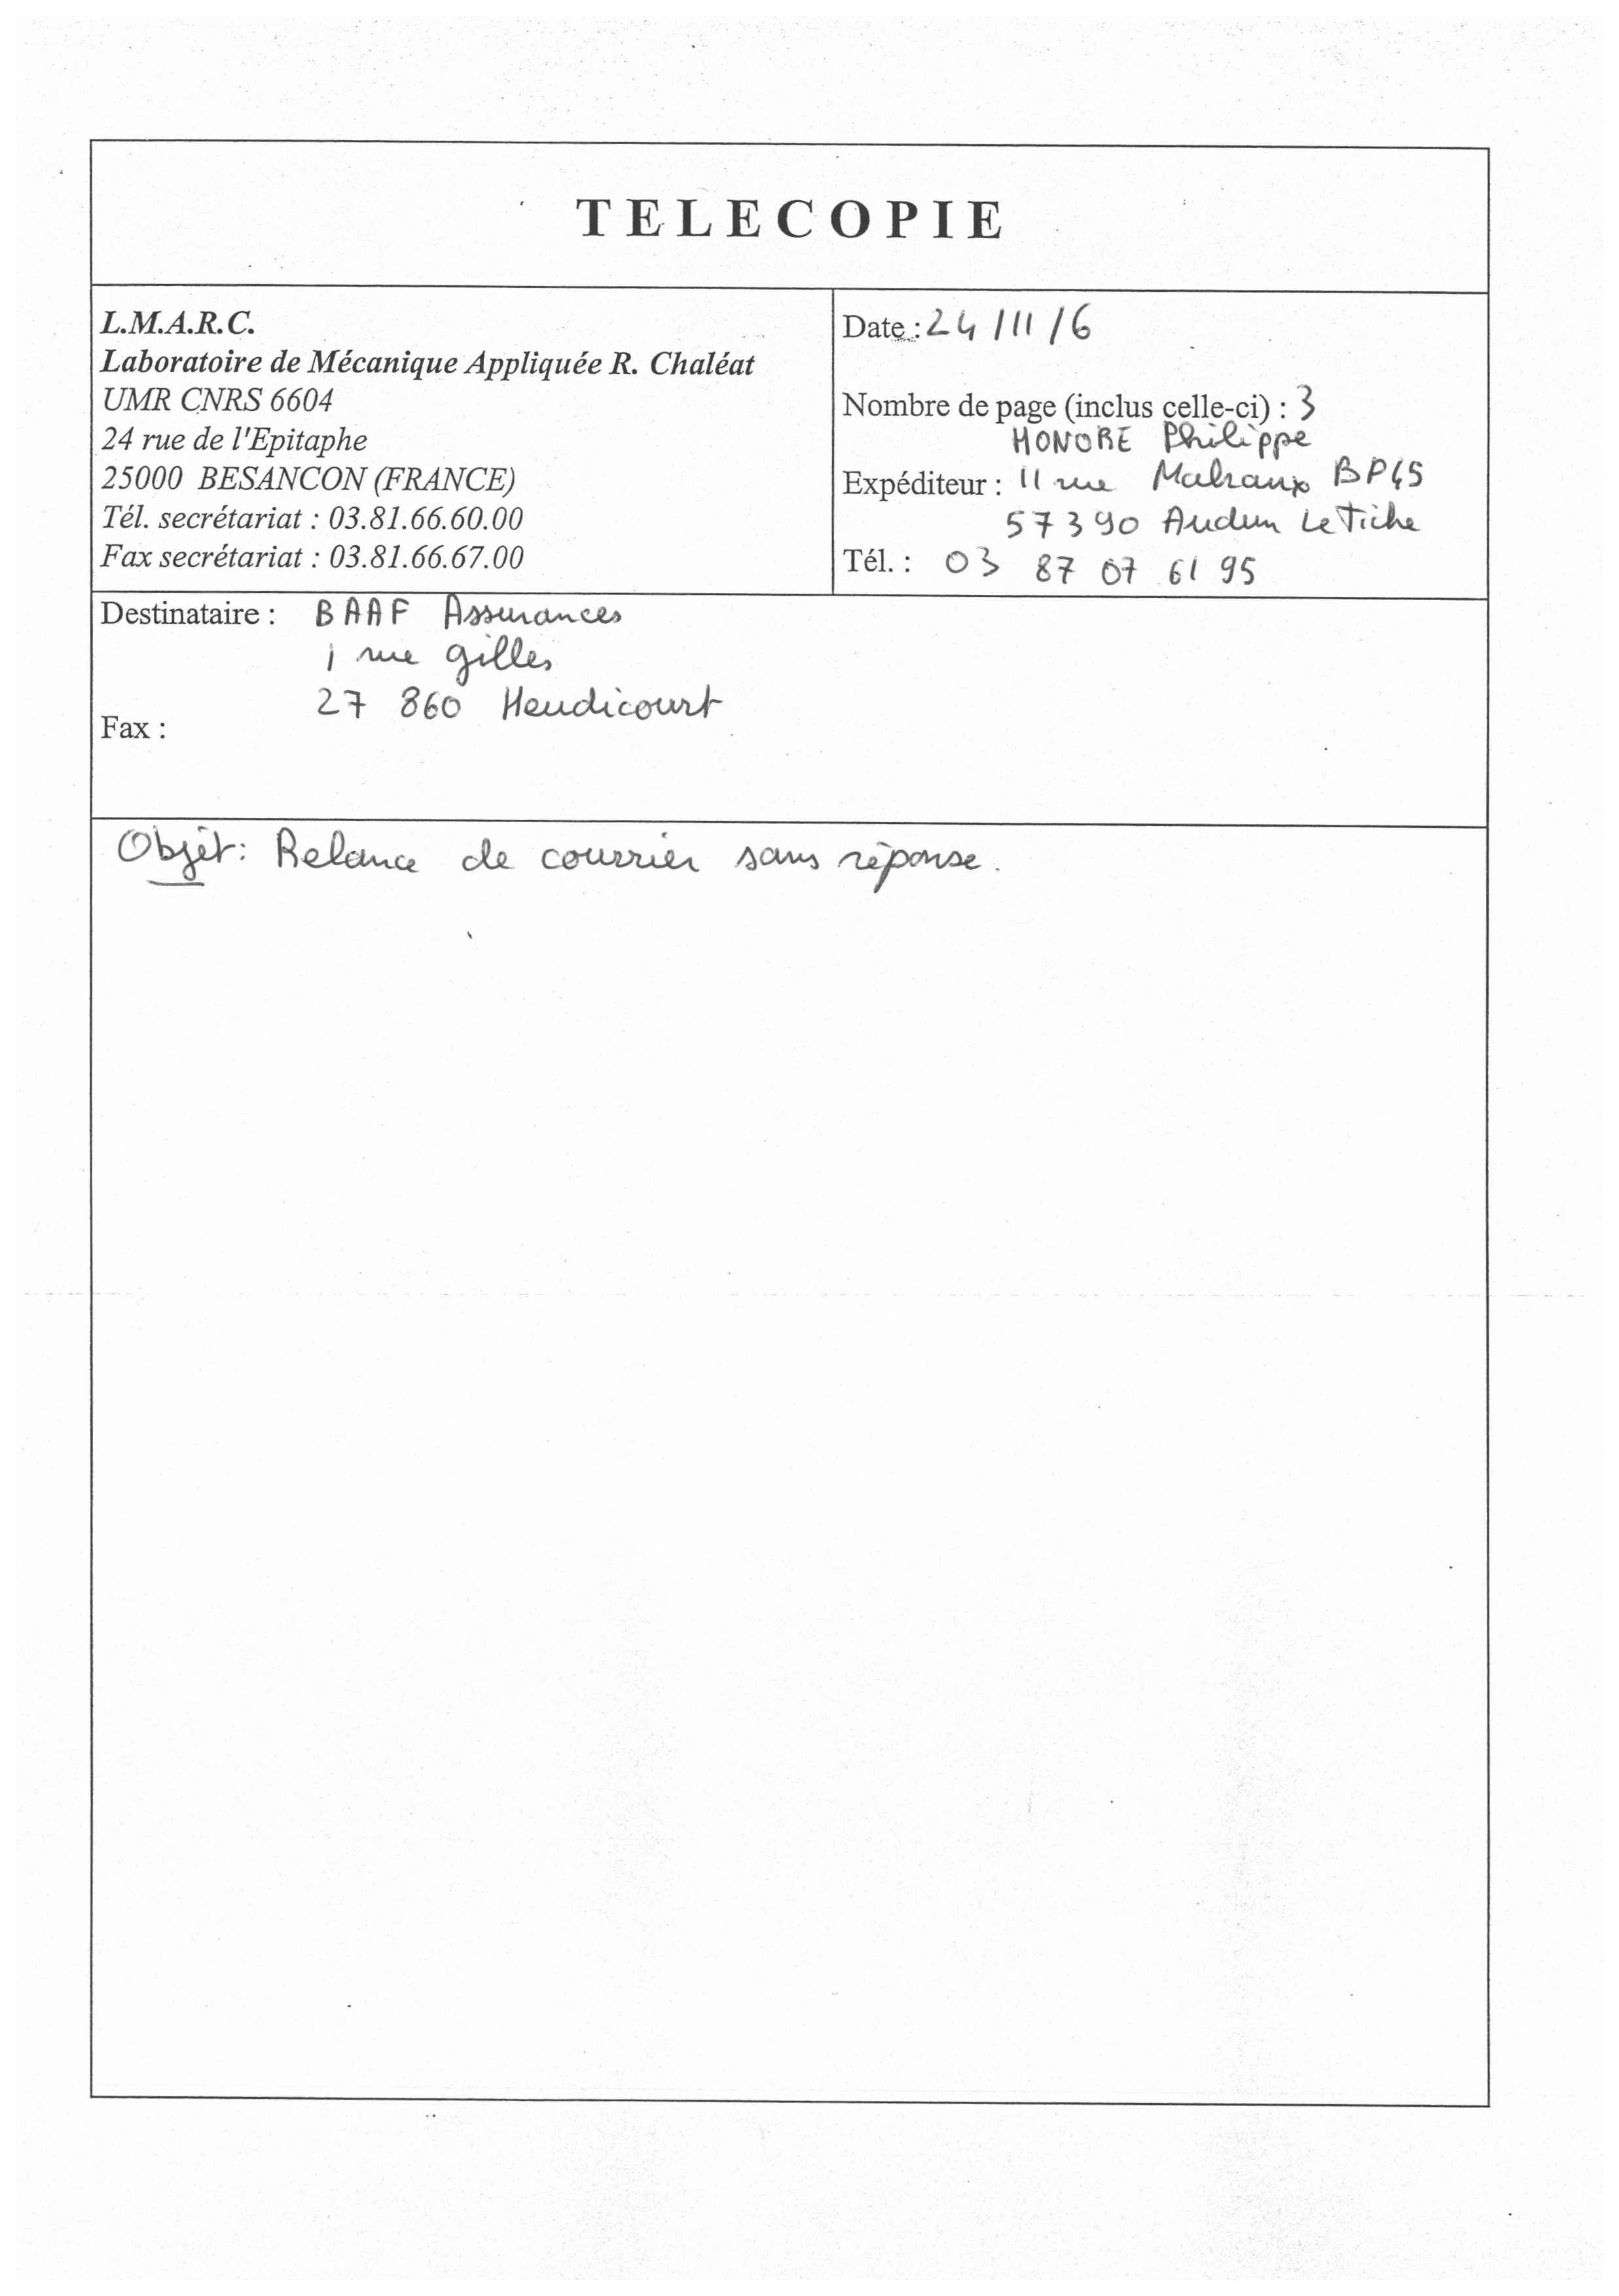 TELECOPIE
L.M.A.R.C.
Laboratoire de Mécanique Appliquée R. Chaléat
UMR CNRS 6604
24 rue de l'Epitaphe
25000 BESANCON (FRANCE)
Tél. secrétariat : 03.81.66.60.00
Fax secrétariat : 03.81.66.67.00
Date : 24/11/6
Nombre de page (inclus celle-ci) : 3
HONORE Philippe
Expéditeur : 11 rue Malraux BP45
57390 Audun Le Tiche
Tél. : 03 87 07 61 95
Destinataire : BAAF Assurances
1 rue gilles
27 860 Heudicourt
Fax :
Objet : Relance de courrier sans réponse.